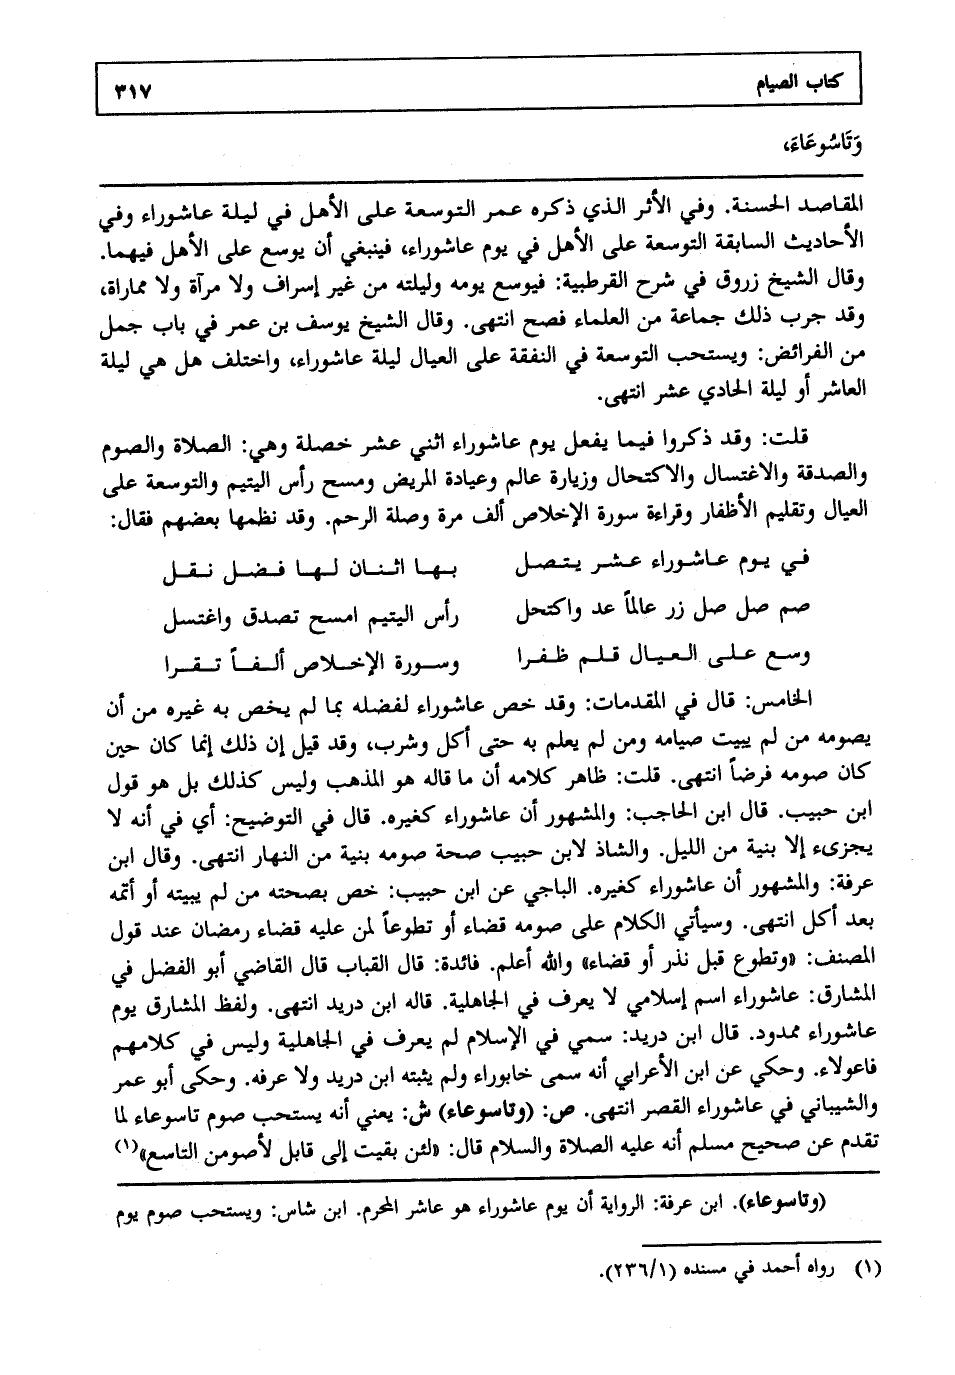 كتاب الصيام ٣١٧
وَتَاسُوعَاءَ،
المقاصد الحسنة. وفي الأثر الذي ذكره عمر التوسعة على الأهل في ليلة عاشوراء وفي
الأحاديث السابقة التوسعة على الأهل في يوم عاشوراء، فينبغي أن يوسع على الأهل فيهما.
وقال الشيخ زروق في شرح القرطبية: فيوسع يومه وليلته من غير إسراف ولا مرآة ولا مماراة،
وقد جرب ذلك جماعة من العلماء فصح انتهى. وقال الشيخ يوسف بن عمر في باب جمل
من الفرائض: ويستحب التوسعة في النفقة على العيال ليلة عاشوراء، واختلف هل هي ليلة
العاشر أو ليلة الحادي عشر انتهى.
قلت: وقد ذكروا فيما يفعل يوم عاشوراء اثني عشر خصلة وهي: الصلاة والصوم
والصدقة والاغتسال والاكتحال وزيارة عالم وعيادة المريض ومسح رأس اليتيم والتوسعة على
العيال وتقليم الأظفار وقراءة سورة الإخلاص ألف مرة وصلة الرحم. وقد نظمها بعضهم فقال:
في يوم عاشوراء عشر يتصل بها اثنان لها فضل نقل
صم صل صل زر عالماً عد واكتحل رأس اليتيم امسح تصدق واغتسل
وسع على العيال قلم ظفرا وسورة الإخلاص ألفاً تقرا
الخامس: قال في المقدمات: وقد خص عاشوراء لفضله بما لم يخص به غيره من أن
يصومه من لم يبيت صيامه ومن لم يعلم به حتى أكل وشرب، وقد قيل إن ذلك إنما كان حين
كان صومه فرضاً انتهى. قلت: ظاهر كلامه أن ما قاله هو المذهب وليس كذلك بل هو قول
ابن حبيب. قال ابن الحاجب: والمشهور أن عاشوراء كغيره. قال في التوضيح: أي في أنه لا
يجزىء إلا بنية من الليل. والشاذ لابن حبيب صحة صومه بنية من النهار انتهى. وقال ابن
عرفة: والمشهور أن عاشوراء كغيره. الباجي عن ابن حبيب: خص بصحته من لم يبيته أو أتمه
بعد أكل انتهى. وسيأتي الكلام على صومه قضاء أو تطوعاً لمن عليه قضاء رمضان عند قول
المصنف: «وتطوع قبل نذر أو قضاء» والله أعلم. فائدة: قال القباب قال القاضي أبو الفضل في
المشارق: عاشوراء اسم إسلامي لا يعرف في الجاهلية. قاله ابن دريد انتهى. ولفظ المشارق يوم
عاشوراء ممدود. قال ابن دريد: سمي في الإسلام لم يعرف في الجاهلية وليس في كلامهم
فاعولاء. وحكي عن ابن الأعرابي أنه سمى خابوراء ولم يثبته ابن دريد ولا عرفه. وحكى أبو عمر
والشيباني في عاشوراء القصر انتهى. ص: (وتاسوعاء) ش: يعني أنه يستحب صوم تاسوعاء لما
تقدم عن صحيح مسلم أنه عليه الصلاة والسلام قال: «لئن بقيت إلى قابل لأصومن التاسع»(١)
(وتاسوعاء). ابن عرفة: الرواية أن يوم عاشوراء هو عاشر المحرم. ابن شاس: ويستحب صوم يوم
(١) رواه أحمد في مسنده (٢٣٦/١).